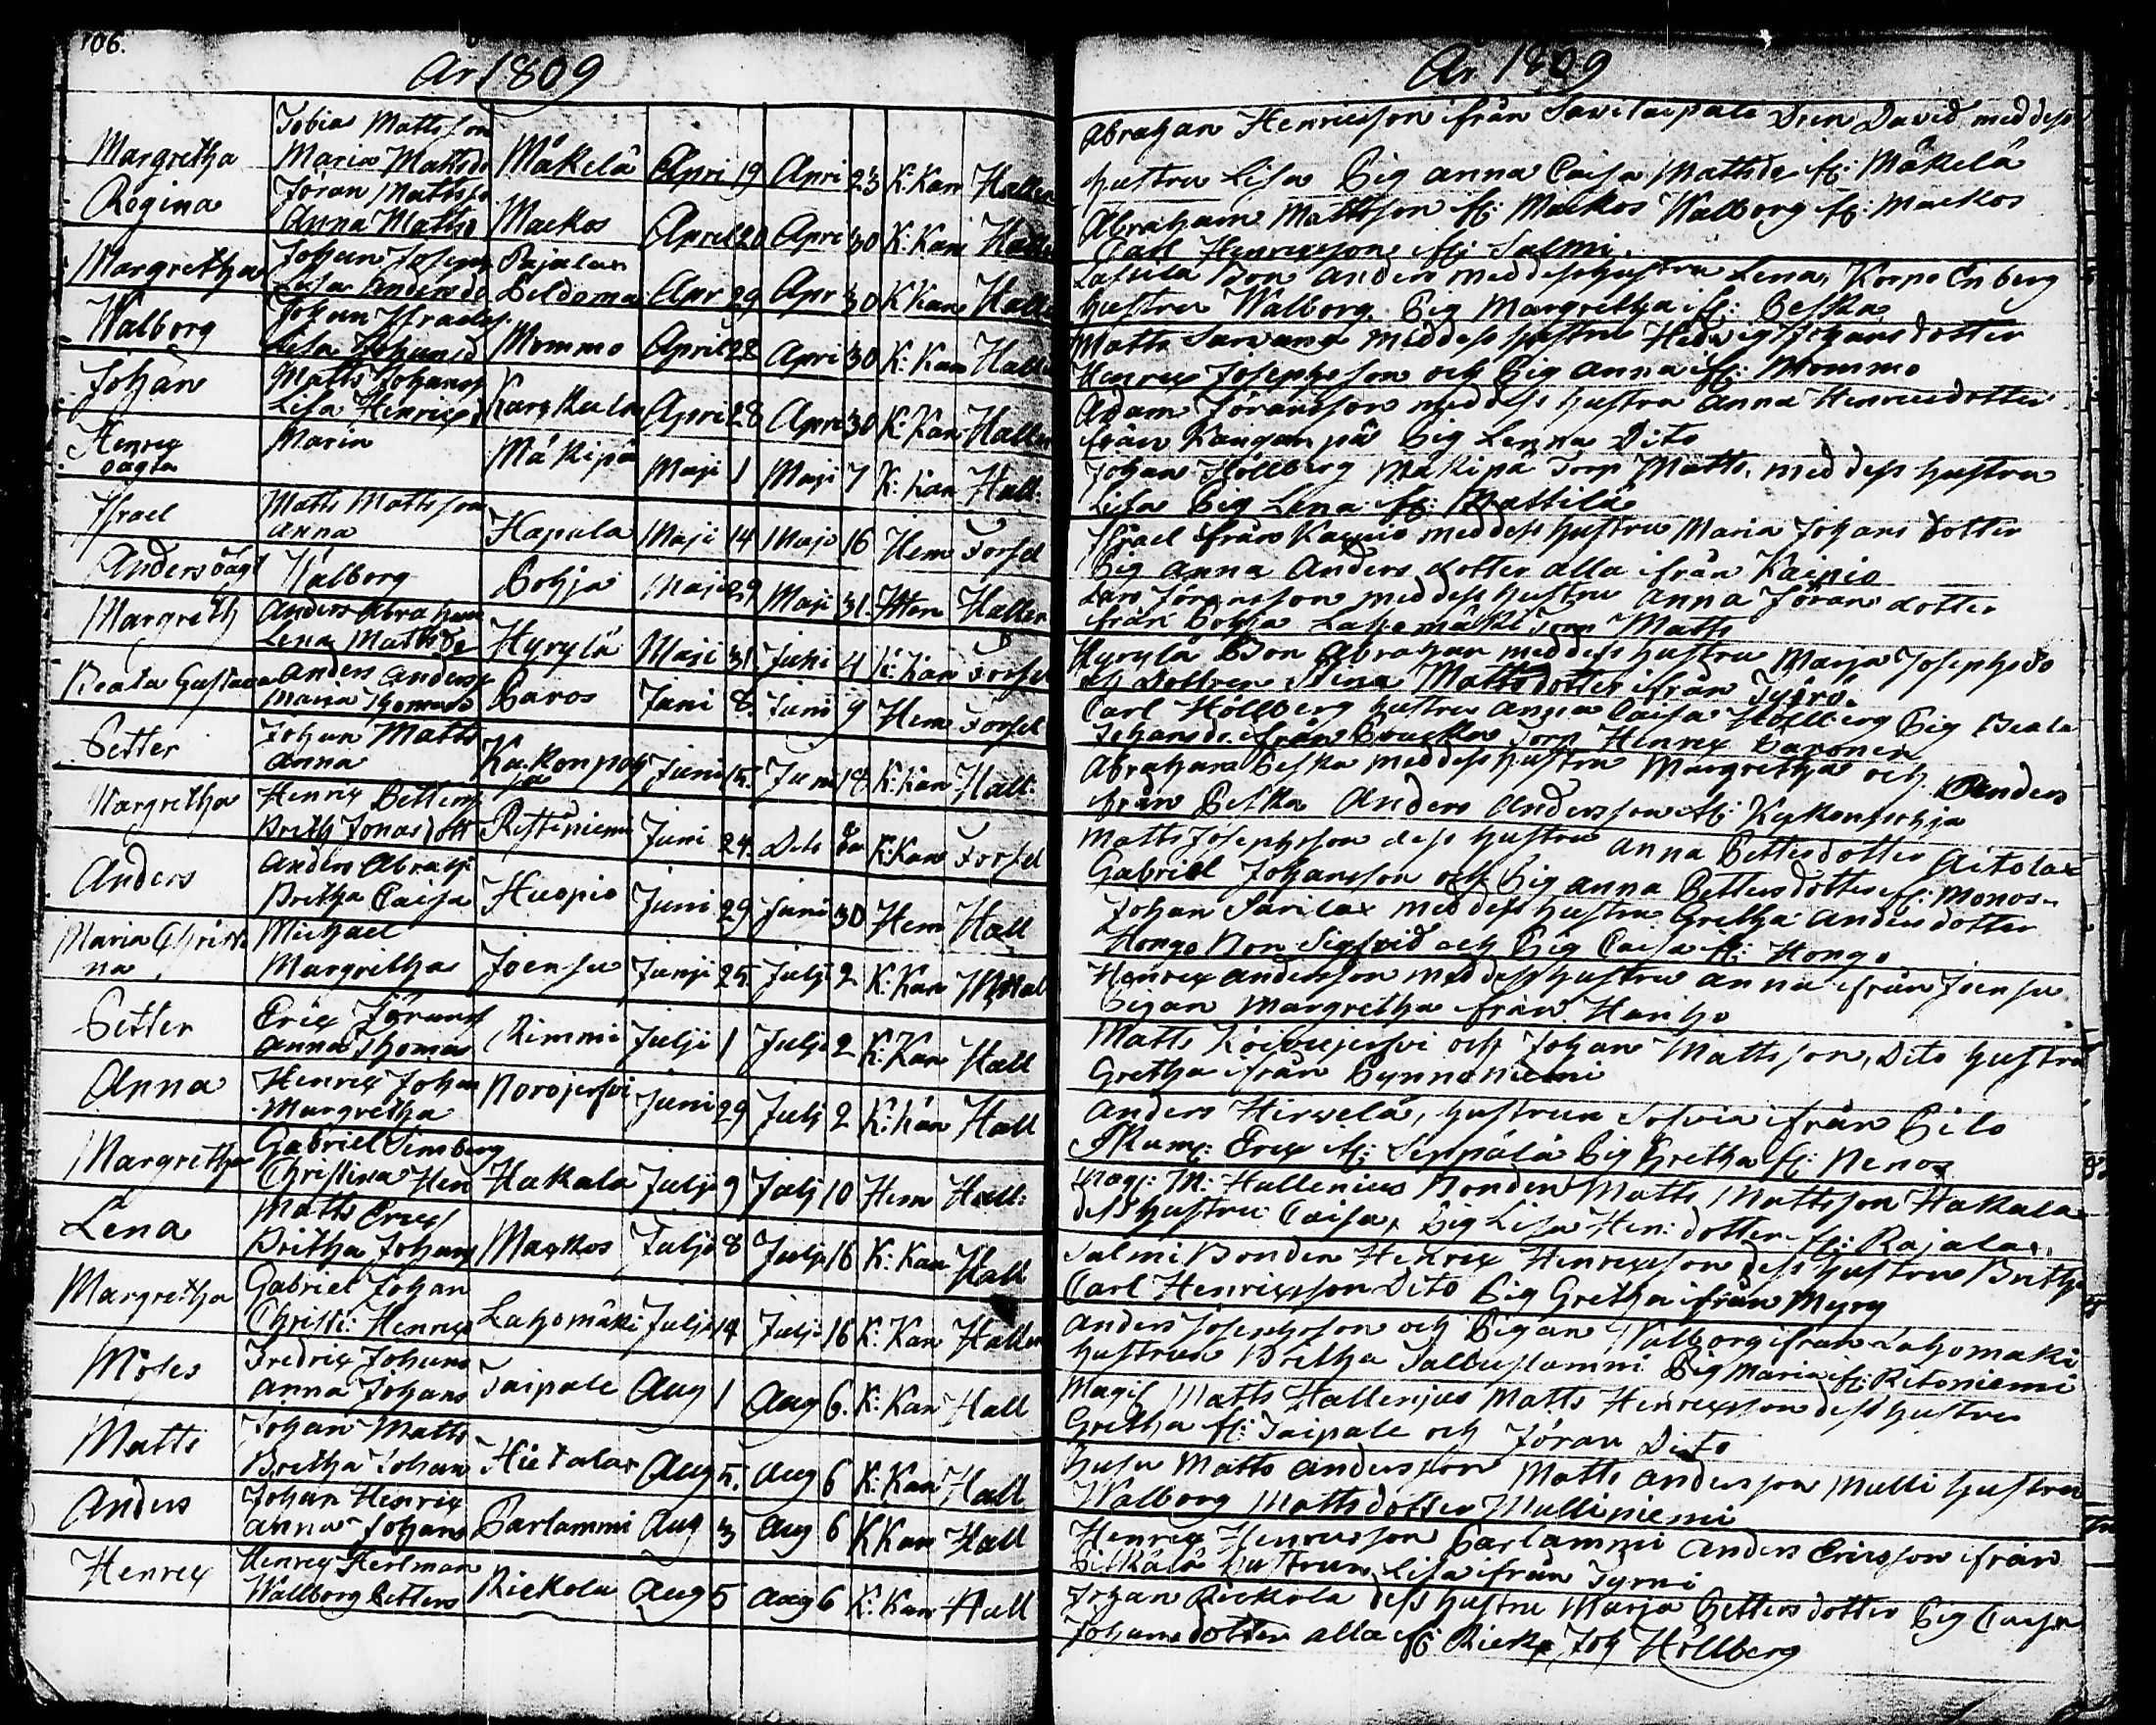 106.
År 1809
Margretha
Tobias Mattsson
Maria Mattsdr
Mäkelä Apri 19 Apri 23 K: Kan Hallen
Regina
Jöran Mattsso
Anna Matts
Maekos April 20 Apri 30 K: Kan Halle
Margretha
Johan Joseps
Lisa Andersdo
Pajalax
Peldoma Apr 29 Apr 30 K Kan Halle
Walborg
Johan Israels
Lisa Johansd
Mommo April 28 Apri 30 K: Kan Halle
Johan
Matts Johanss
Lisa Henrix
Apri 28 Apri 30 K: Kan Hallen
Henrix
oägta
Maria
Mäkipä Maji 1 Maji 7 K: Kan Hall:
Israel
Matts Mattsson
Anna
Hapala Maji 14 Maji 16 Hem Forsel
Anders oägt
Walborg
Pohja Maji 29 Maji 31 Hem Hallen
Margreth
Anders Abraham
Lena Mattsdr
Hyrylä Maji 31 Juni 4 K: Kan Forsel
Beata Gustava
Anders Anders
Maria Thomas
Paros Juni 8. Juni 9 Hem Forsel
Petter
Johan Matts
Anna
Juni 15. Juni 18 K: Kan Hall:
Margretha
Henrix Petters
Brith Jonasdott
Ristiniemi Juni 24. Dito K: Kan Forsel
Anders
Anders Abrah
Britha Caisa
Huopio Juni 29 Juni 30 Hem Hall
Maria Christi
na
Michael
Margretha
Joensu Junji 25 Julj 2 K: Kan Hall
Petter
Erix Jörans
Anna Thomas
Rimmi Julji 1 Julj 2 K: Kan Hall
Anna
Henrix Johan
Margretha
Norojerfvi Juni 29 Julj 2 K: Kan Hall
Margretha
Gabriel Simberg
Christina Hen
Hakala Julji 9 Julj 10 Hem Hall:
Lena
Matts Erix
Britha Johans
Maxkos Julji 8 Julji 16 K: Kan Hall
Margretha
Gabriel Johan
Christi: Henrix
Lahomäki Julji 14 Julji 16 K: Kan Hallen
Moses
Fredrix Johans
Anna Johans
Taipale Aug 1 Aug 6. K: Kan Hall
Matts
Johan Matts
Britha Johan
Hietalax Aug 5. Aug 6 K: Kan Hall
Anders
Johan Henrix
Anna Johans
Parlammi Aug 3 Aug 6 K Kan Hall
Henrix
Henrix Herlman
Wallborg Petters
Riekola Aug 5 Aug 6 K: Kan Hall
År 1809
Abrahan Henricsson ifrån Savitaipale Dren David med dess
hustru Lisa Pig Anna Caisa Mattsdr if: Mäkelä
Abraham Mattsson if: Maekos Walborg if: Maekos
Carl Henrixsson if: Salmi.
Bon Anders med dess hustru Lena, Korp: Enberg
hustru Walborg Pig Margretha if: Peska
Matts med dess hustru Hedvig Johansdotter
Henrix Josephsson och Pig Anna if: Mommo
Adam Joransson med dess hustru Anna Henricsdotter
från Kangan pä Pig Lenna Dito
Johan Höllberg Mäkipä Torp Matts, med dess hustru
Lisa Pig Lena if: Mattila
Israel ifrån med dess hustru Maria Johans dotter
Pig Anna Anders dotter alla ifrån Kainio
Lars Joransson med dess hustru Anna Jörans dotter
från Pohja Torp Matts
Hyrylä Bon Abrahan med dess hustru Marja Josephsdo
Dottren Stina Mattsdotter ifrån
Carl Höllberg hustru Anna Caisa Höllberg Pig Beata
Johansdr. ifrån Torp Henrix Paronen
Abraham Peska med dess hustru Margretha och Anders
ifrån Peska Anders Andersson if:
Matts Josephsson dess hustru Anna Pettersdotter Aitolax
Gabriel Johansson och Pig Anna Petters dotter if: Monos
Johan Sarilax med dess hustru Gretha Anders dotter
Hongo Bon Sigfrid och Pig Caisa if: Hongo
Henrix Andersson med dess hustru Anna ifrån Joensu
Pigan Margretha ifrån Hanho
Matts Koivujerfvi och Johan Mattsson, Dito hustru
Gretha ifrån Pynnöniemi
Anders Hirvelä, hustrun Sofvia ifrån Pilo
Skump: Erix if: Seppälä Pig Gretha if: Nenos
Mag: M: Hallenius Bonden Matts Mattsson Hakala
dess hustru Caisa, Pig Lisa Hen: dotter if: Rajalax
Salmi Bonden Henrix Henrixsson dess hustru Britha
Carl Henrixsson Dito Pig Gretha ifrån Myry
Anders Josephsson och Pigan Vallborg ifrån Lahomäki
hustrun Britha Salluslammi Pig Maria if: Ritoniemi
Magis Matts Hallenjus Matts Henrixsson dess hustru
Gretha if: Taipale och Jöran Dito
Husu Matts Andersson Matts Andersson Mulli hustru
Walborg Mattsdotter Mulliniemi
Henrix Henricsson Parlammi Anders Ericsson ifrån
Pitkälä hustrun Lisa ifrån Tyrni
Johan Riekola dess hustru Marja Petters dotter Pig Caisa
Johans dotter alla if: Rieko, Joh Höllberg